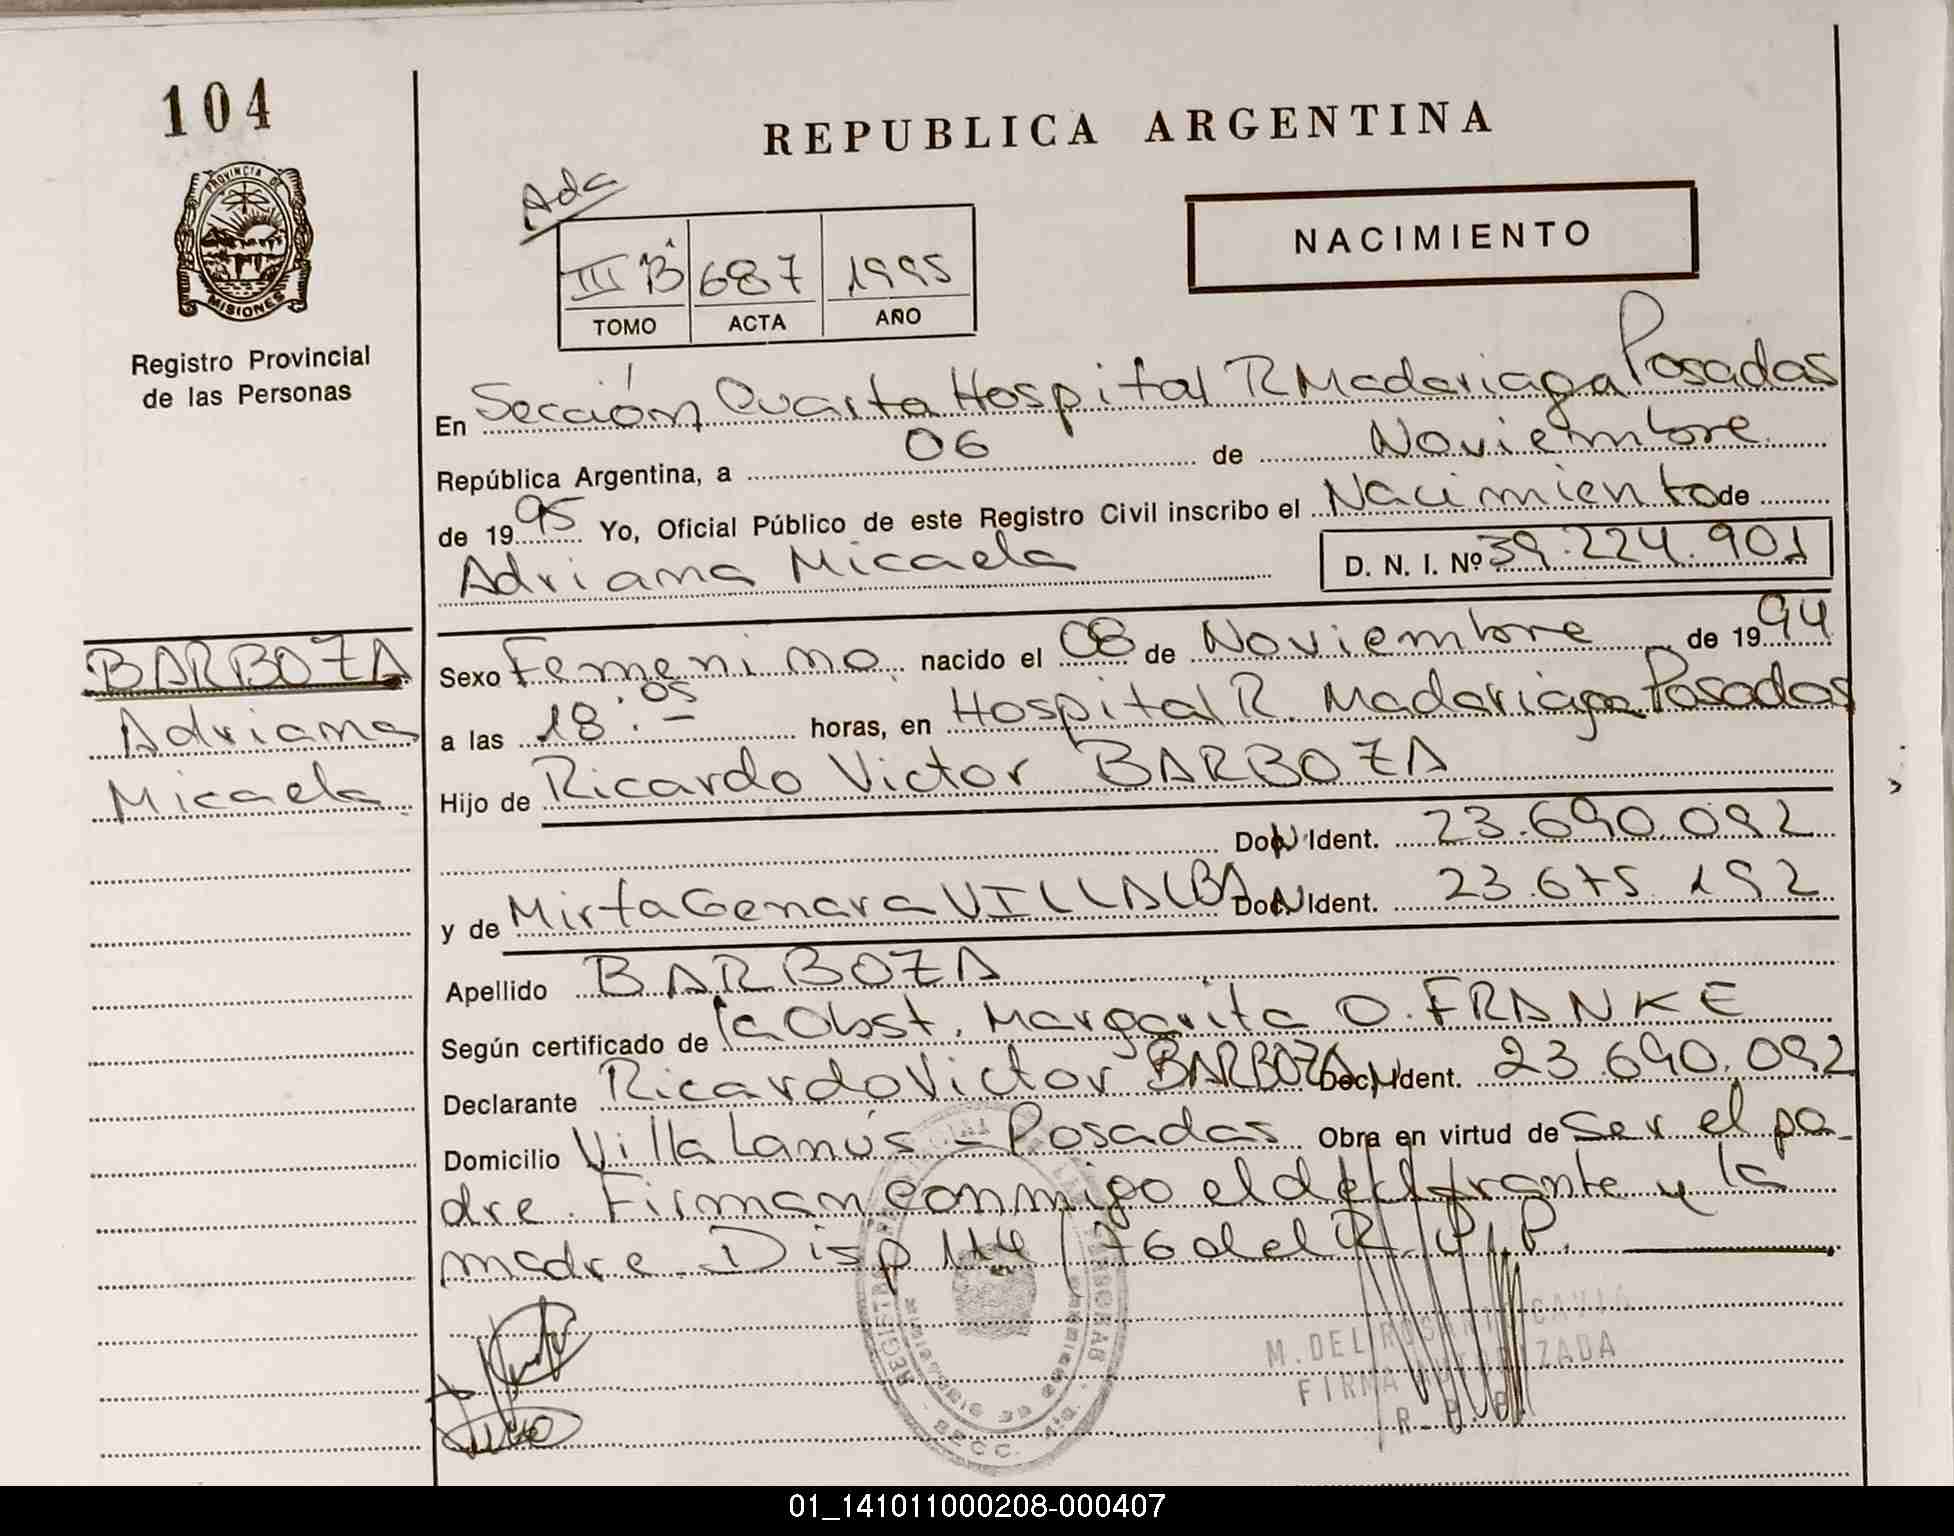 104
PROVINCIA DE
MISIONES
Registro Provincial
de las Personas
REPUBLICA ARGENTINA
NACIMIENTO
Ada
III B^ 687 1995
TOMO ACTA AÑO
En Sección Cuarta Hospital R Madariaga Posadas
República Argentina, a 06 de Noviembre
de 1995 Yo, Oficial Público de este Registro Civil inscribo el Nacimiento de
Adriana Micaela D. N. I. Nº 39.224.901
BARBOZA
Adriana
Micaela
Sexo Femenino nacido el 08 de Noviembre de 1994
a las 18:05- horas, en Hospital R. Madariaga Posadas
Hijo de Ricardo Victor BARBOZA
Ident. 23.690.092
y de Mirta Genara VILLALBA Ident. 23.675.192
Apellido BARBOZA
Según certificado de la Obst. Margarita O. FRANKE
Declarante Ricardo Victor BARBOZA Doc, Ident. 23.690.092
Domicilio Villa Lanús - Posadas Obra en virtud de Ser el pa-
dre. Firman conmigo el declarante y la
madre. Disp 114/76 del R.P.P.
M. DEL ROSARIO
FIRMA AUTORIZADA
R. P. P.
01_141011000208-000407